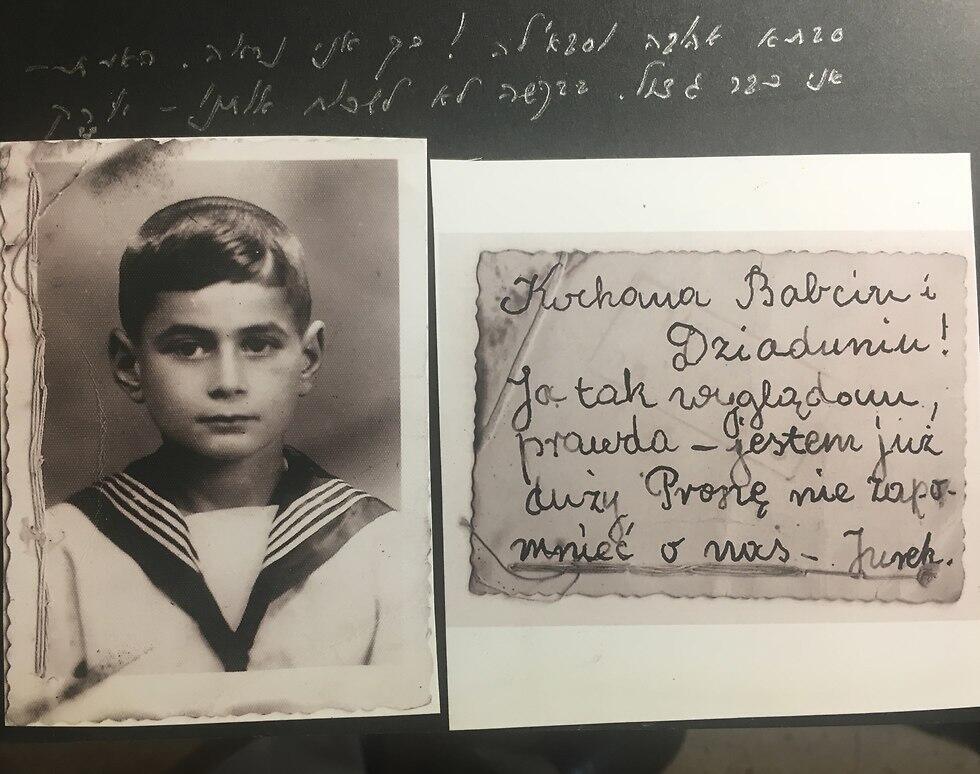 סבתא אהובה וסבא'לה! כך אני נראה. האמת –
אני כבר גדול. בבקשה לא לשכוח אותנו –
Kochana Babciu i
Dziaduniu!
Ja tak wyglądam,
prawda – jestem już
duży Proszę nie zapo-
mnieć o nas – Jurek.